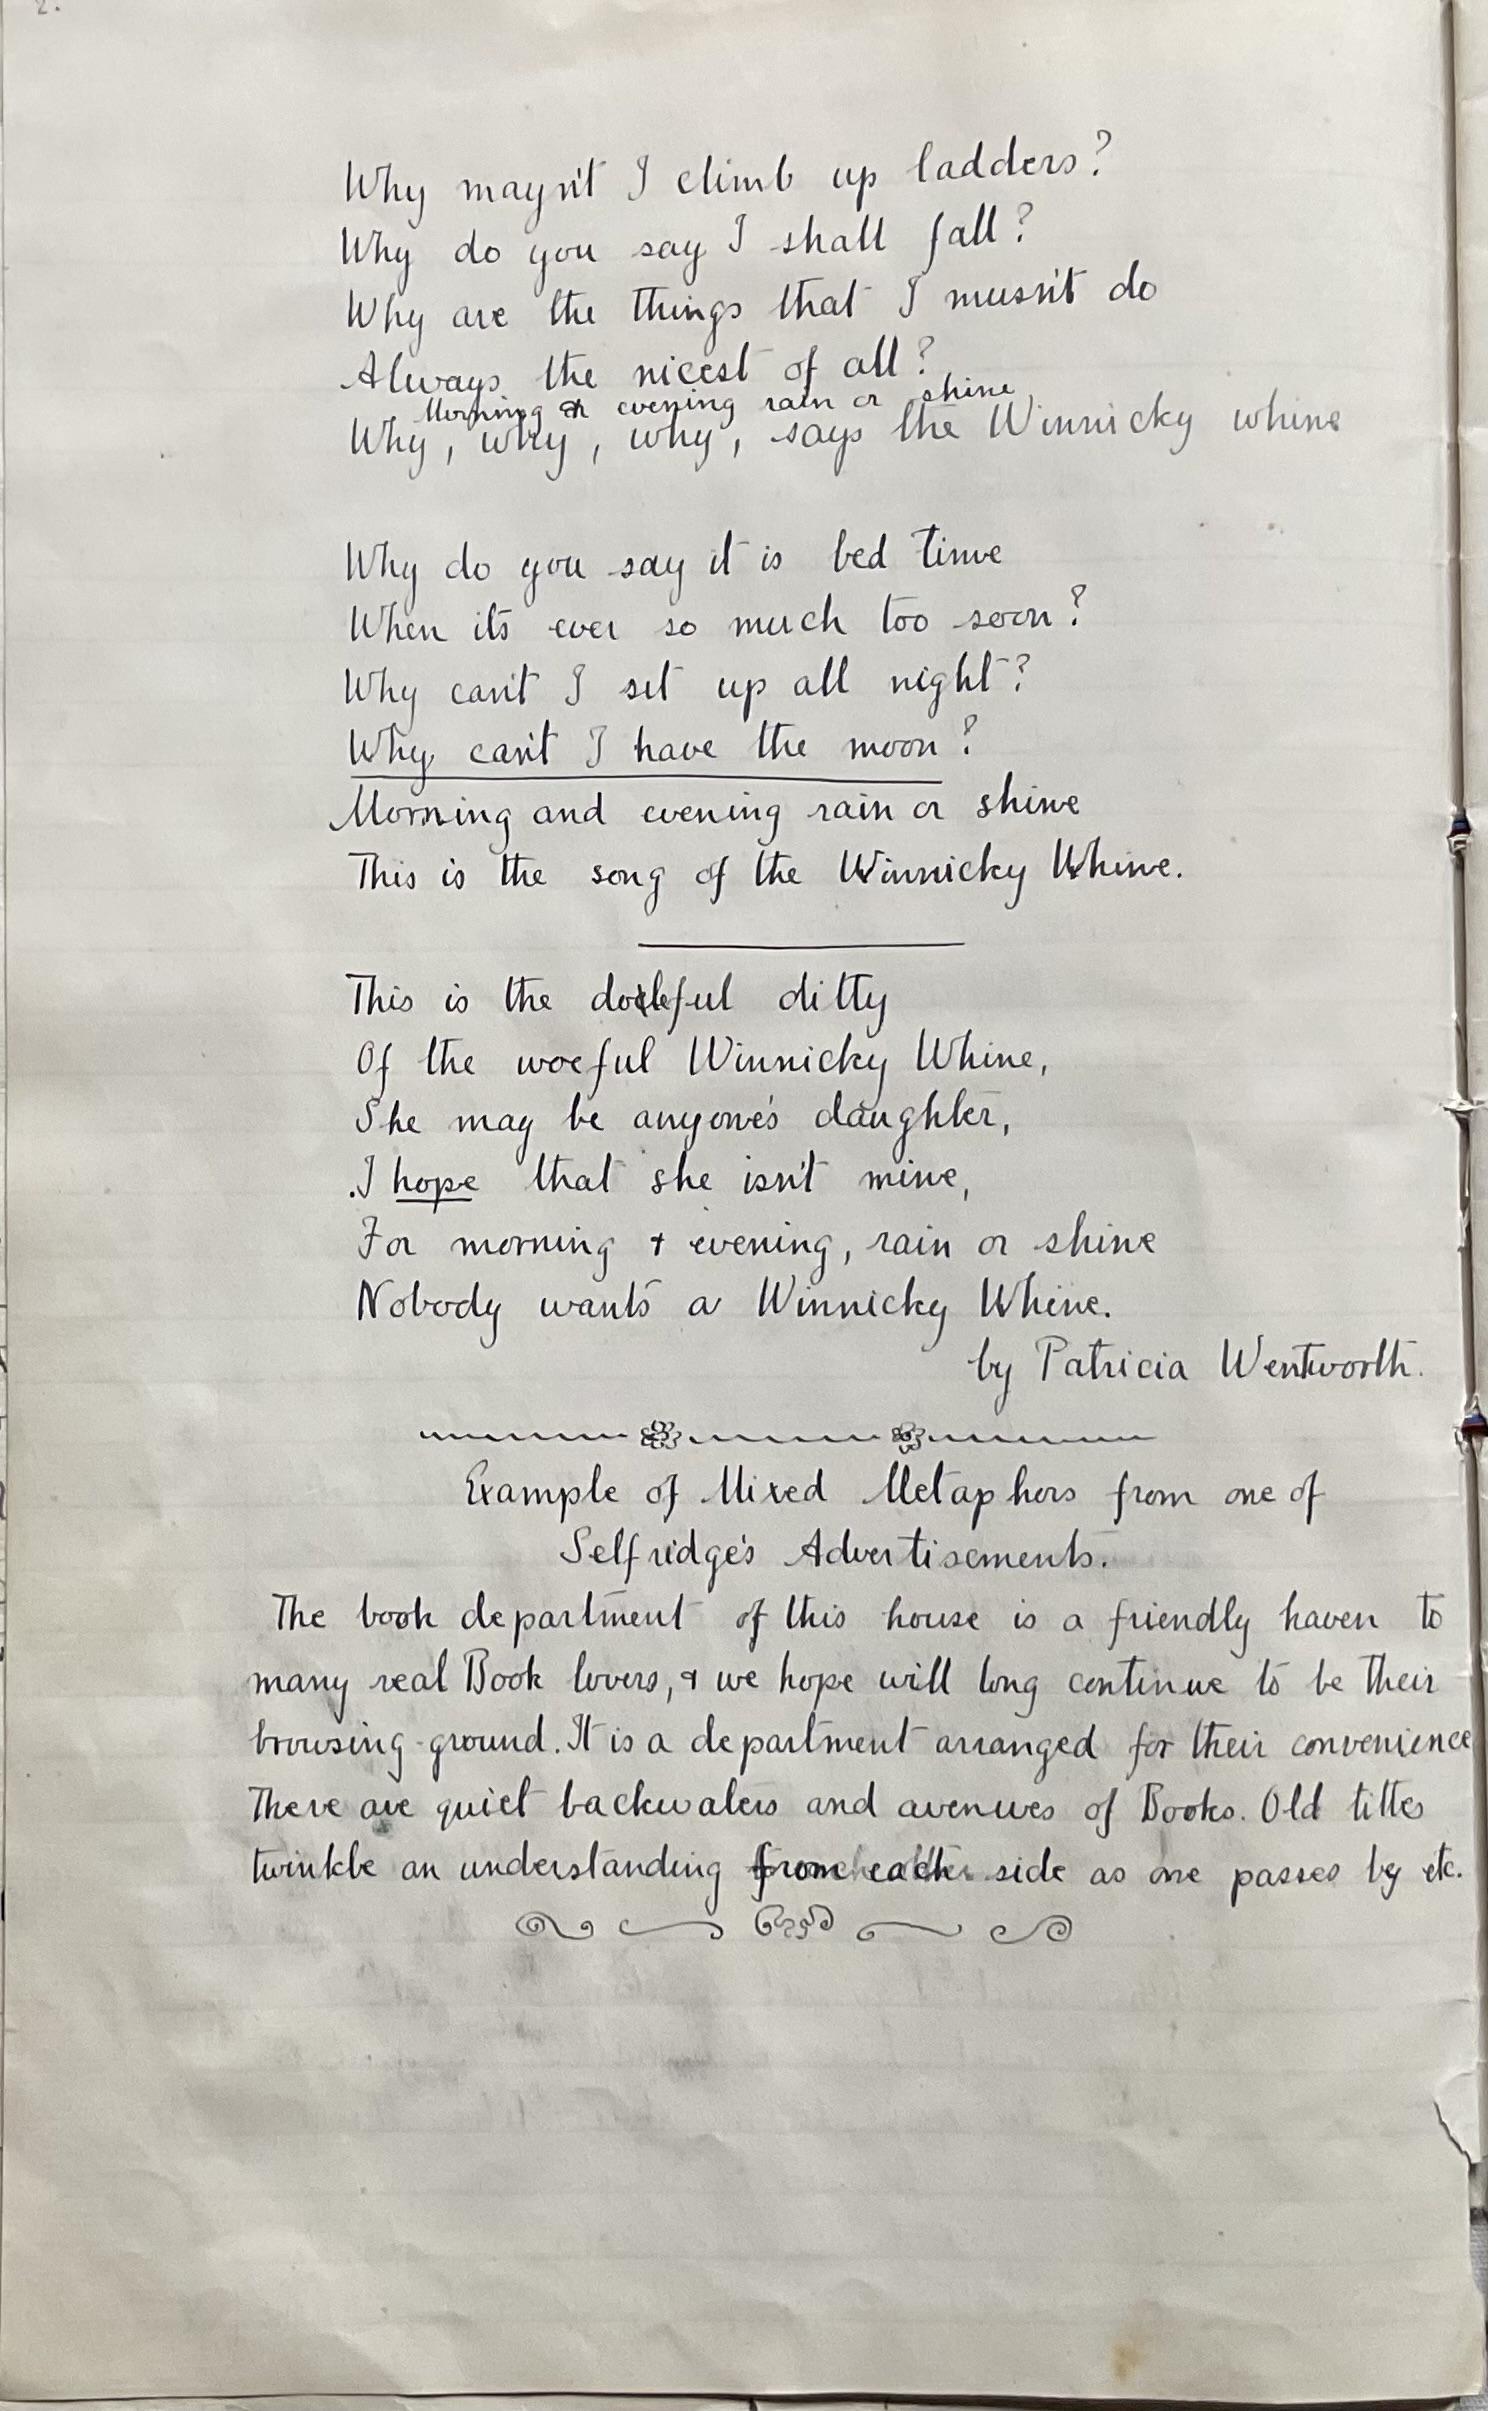 2.
Why mayn't I climb up ladders?
Why do you say I shall fall?
Why are the things that I musn't do
Always the nicest of all?
Morning & evening rain or shine
Why, why, why, says the Winnicky whine
Why do you say it is bed time
When its ever so much too soon?
Why can't I sit up all night?
Why can't I have the moon?
Morning and evening rain or shine
This is the song of the Winnicky Whine.
This is the doleful ditty
Of the woeful Winnicky Whine,
She may be anyone's daughter,
I hope that she isn't mine,
For morning & evening, rain or shine
Nobody wants a Winnicky Whine.
by Patricia Wentworth.
Example of Mixed Metaphors from one of
Selfridge's Advertisements.
The book department of this house is a friendly haven to
many real Book lovers, & we hope will long continue to be their
browsing-ground. It is a department arranged for their convenience
There are quiet backwaters and avenues of Books. Old titles
twinkle an understanding from each side as one passes by etc.